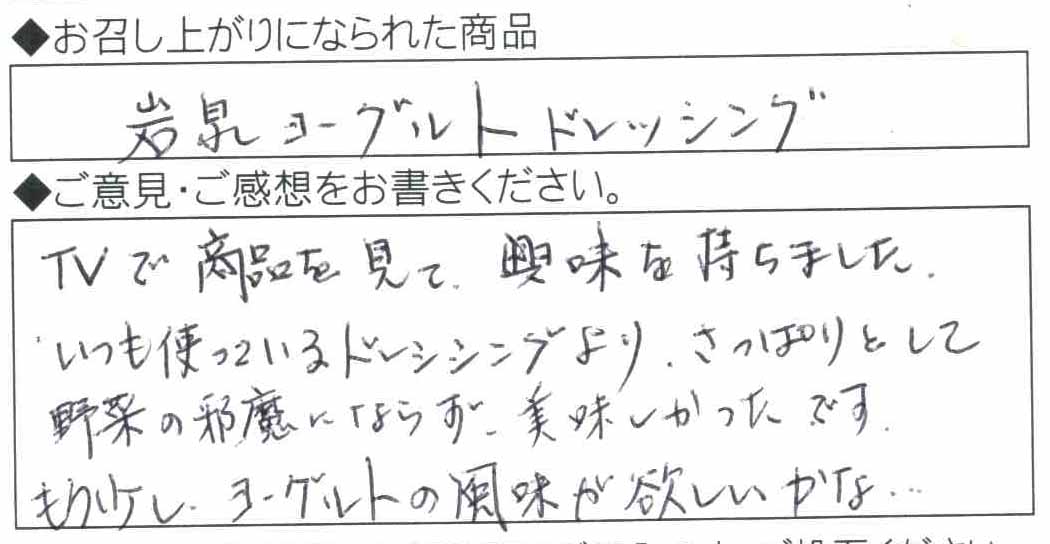 ◆お召し上がりになられた商品
岩泉ヨーグルトドレッシング
◆ご意見・ご感想をお書きください。
TVで商品を見て、興味を持ちました。
いつも使っているドレッシングより、さっぱりとして
野菜の邪魔にならず、美味しかったです。
もう少し、ヨーグルトの風味が欲しいかな…